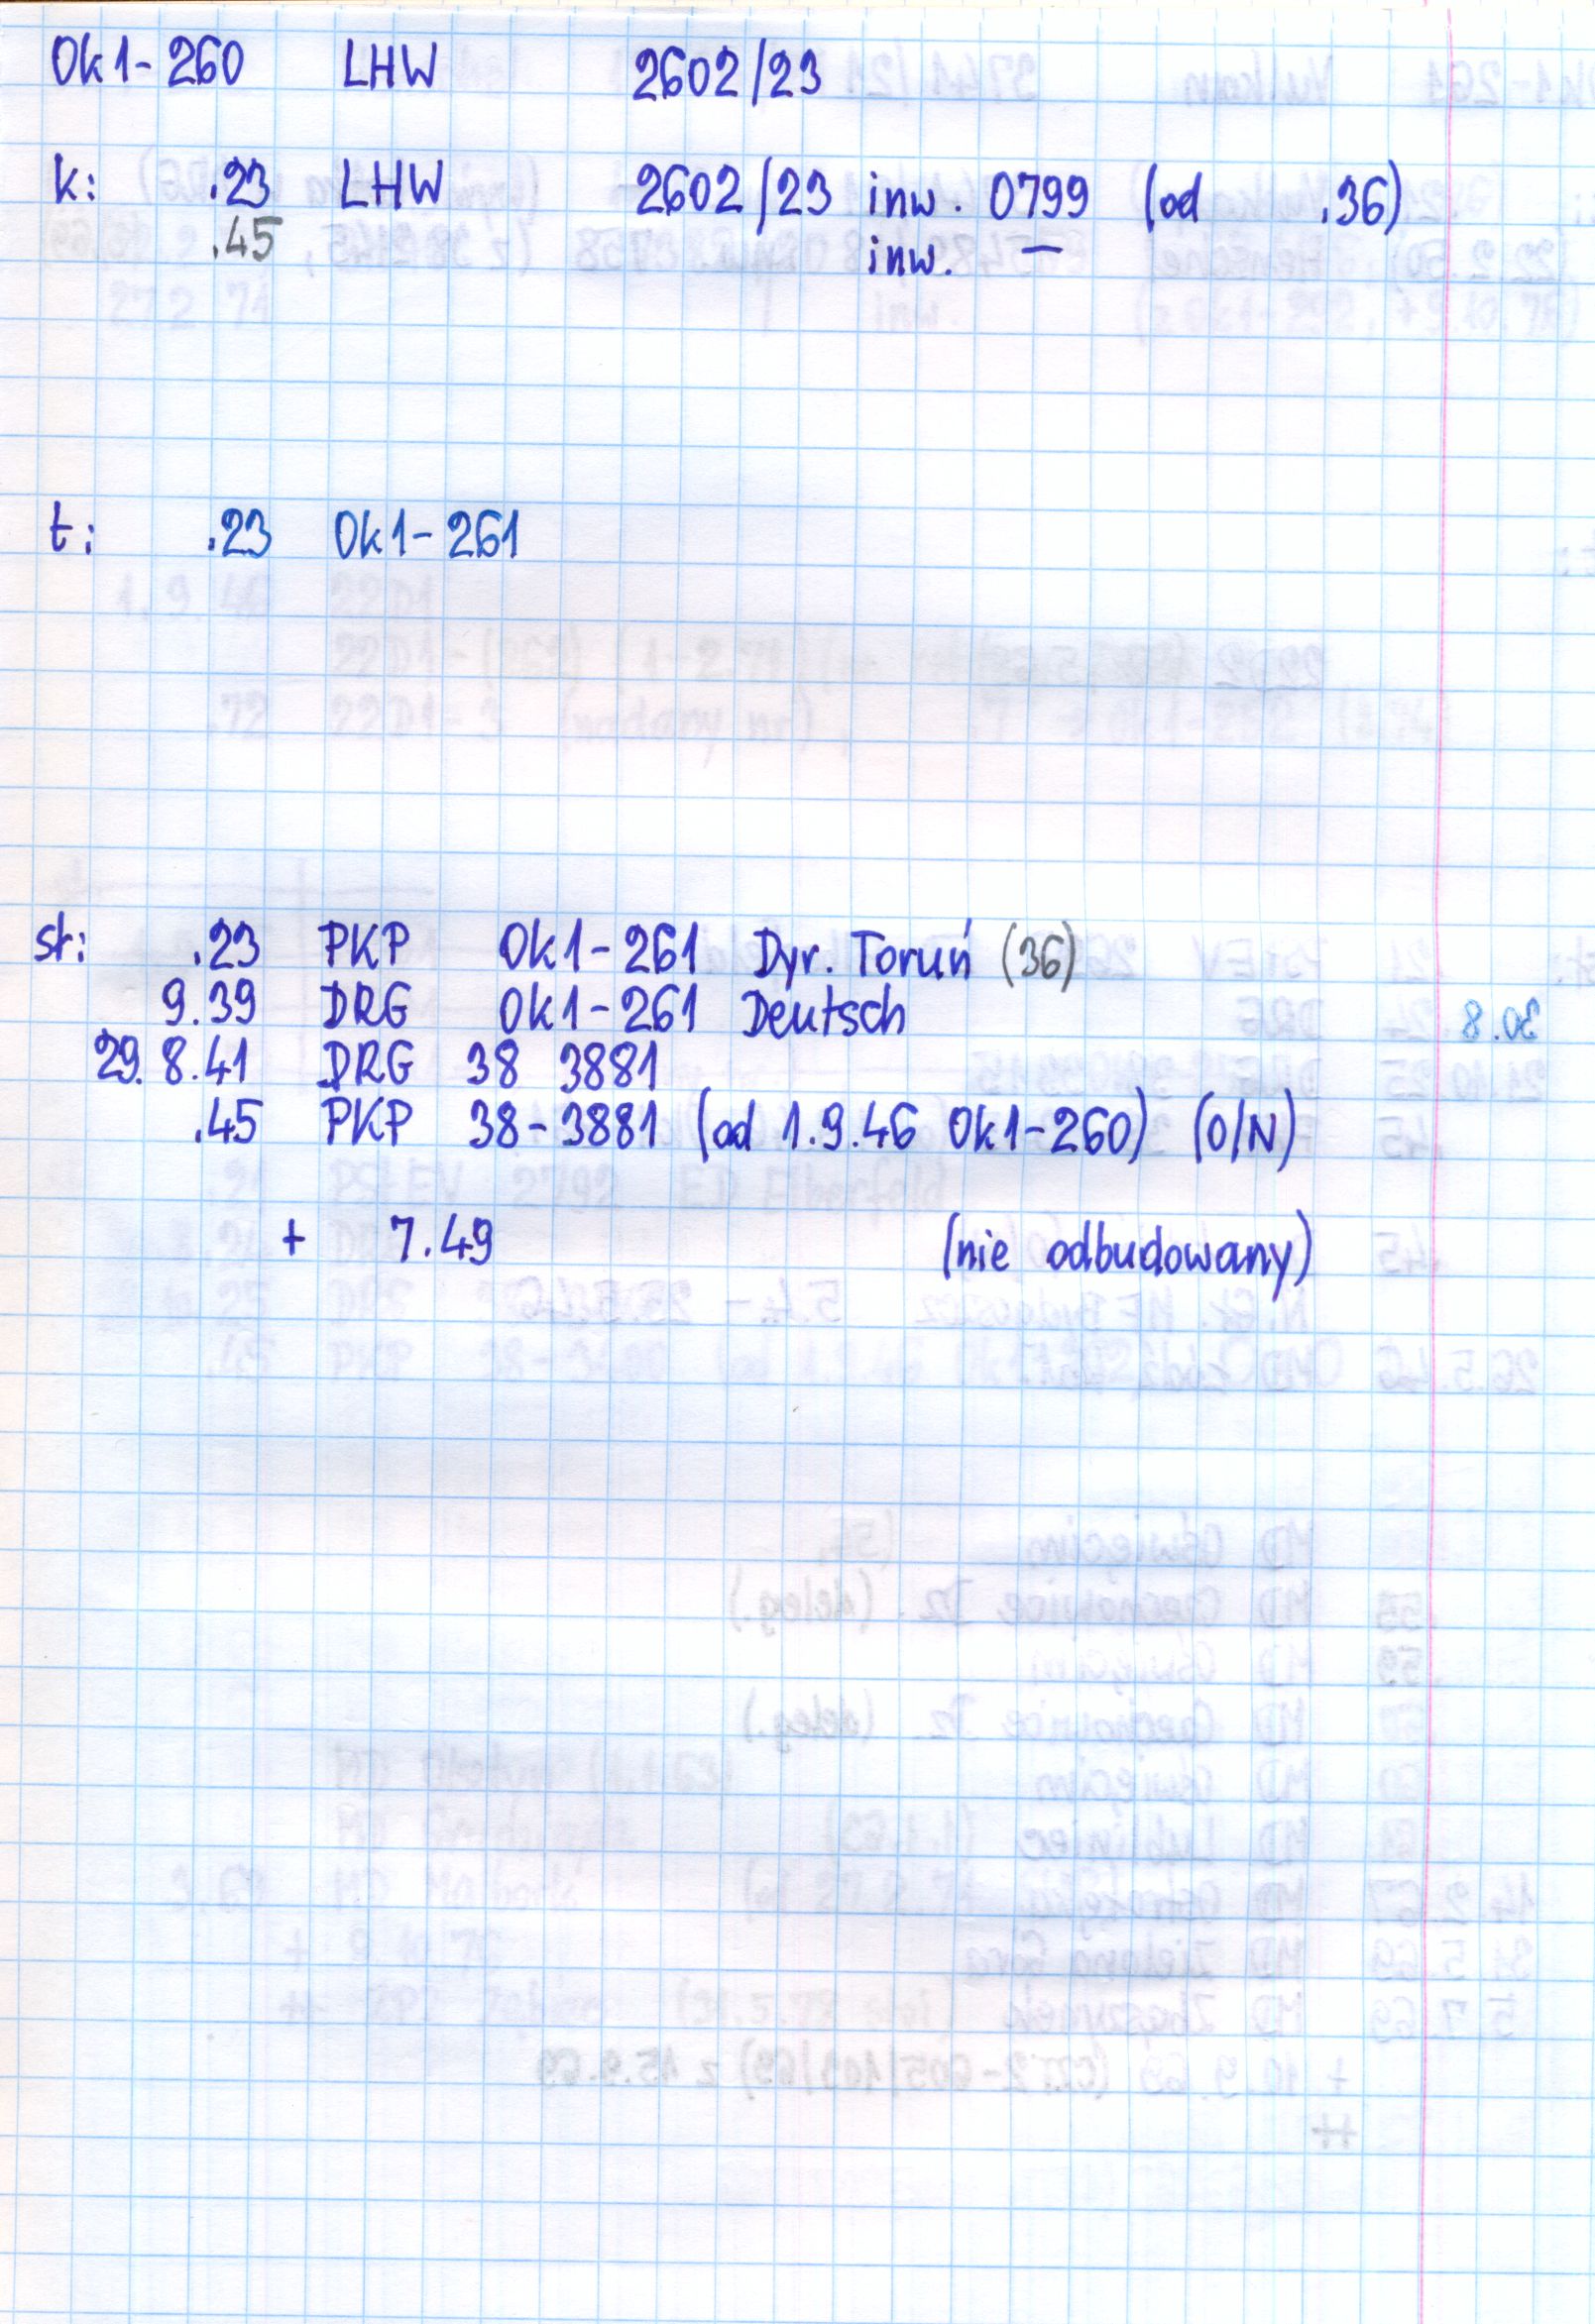 Ok1-260 LHW 2602/23
k: .23 LHW 2602/23 inw. 0799 (od .36)
.45 inw. —
t: .23 Ok1-261
st: .23 PKP Ok1-261 Dyr. Toruń (36)
9.39 DRG Ok1-261 Deutsch
29.8.41 DRG 38 3881
.45 PKP 38-3881 (od 1.9.46 Ok1-260) (O/N)
+ 7.49 (nie odbudowany)